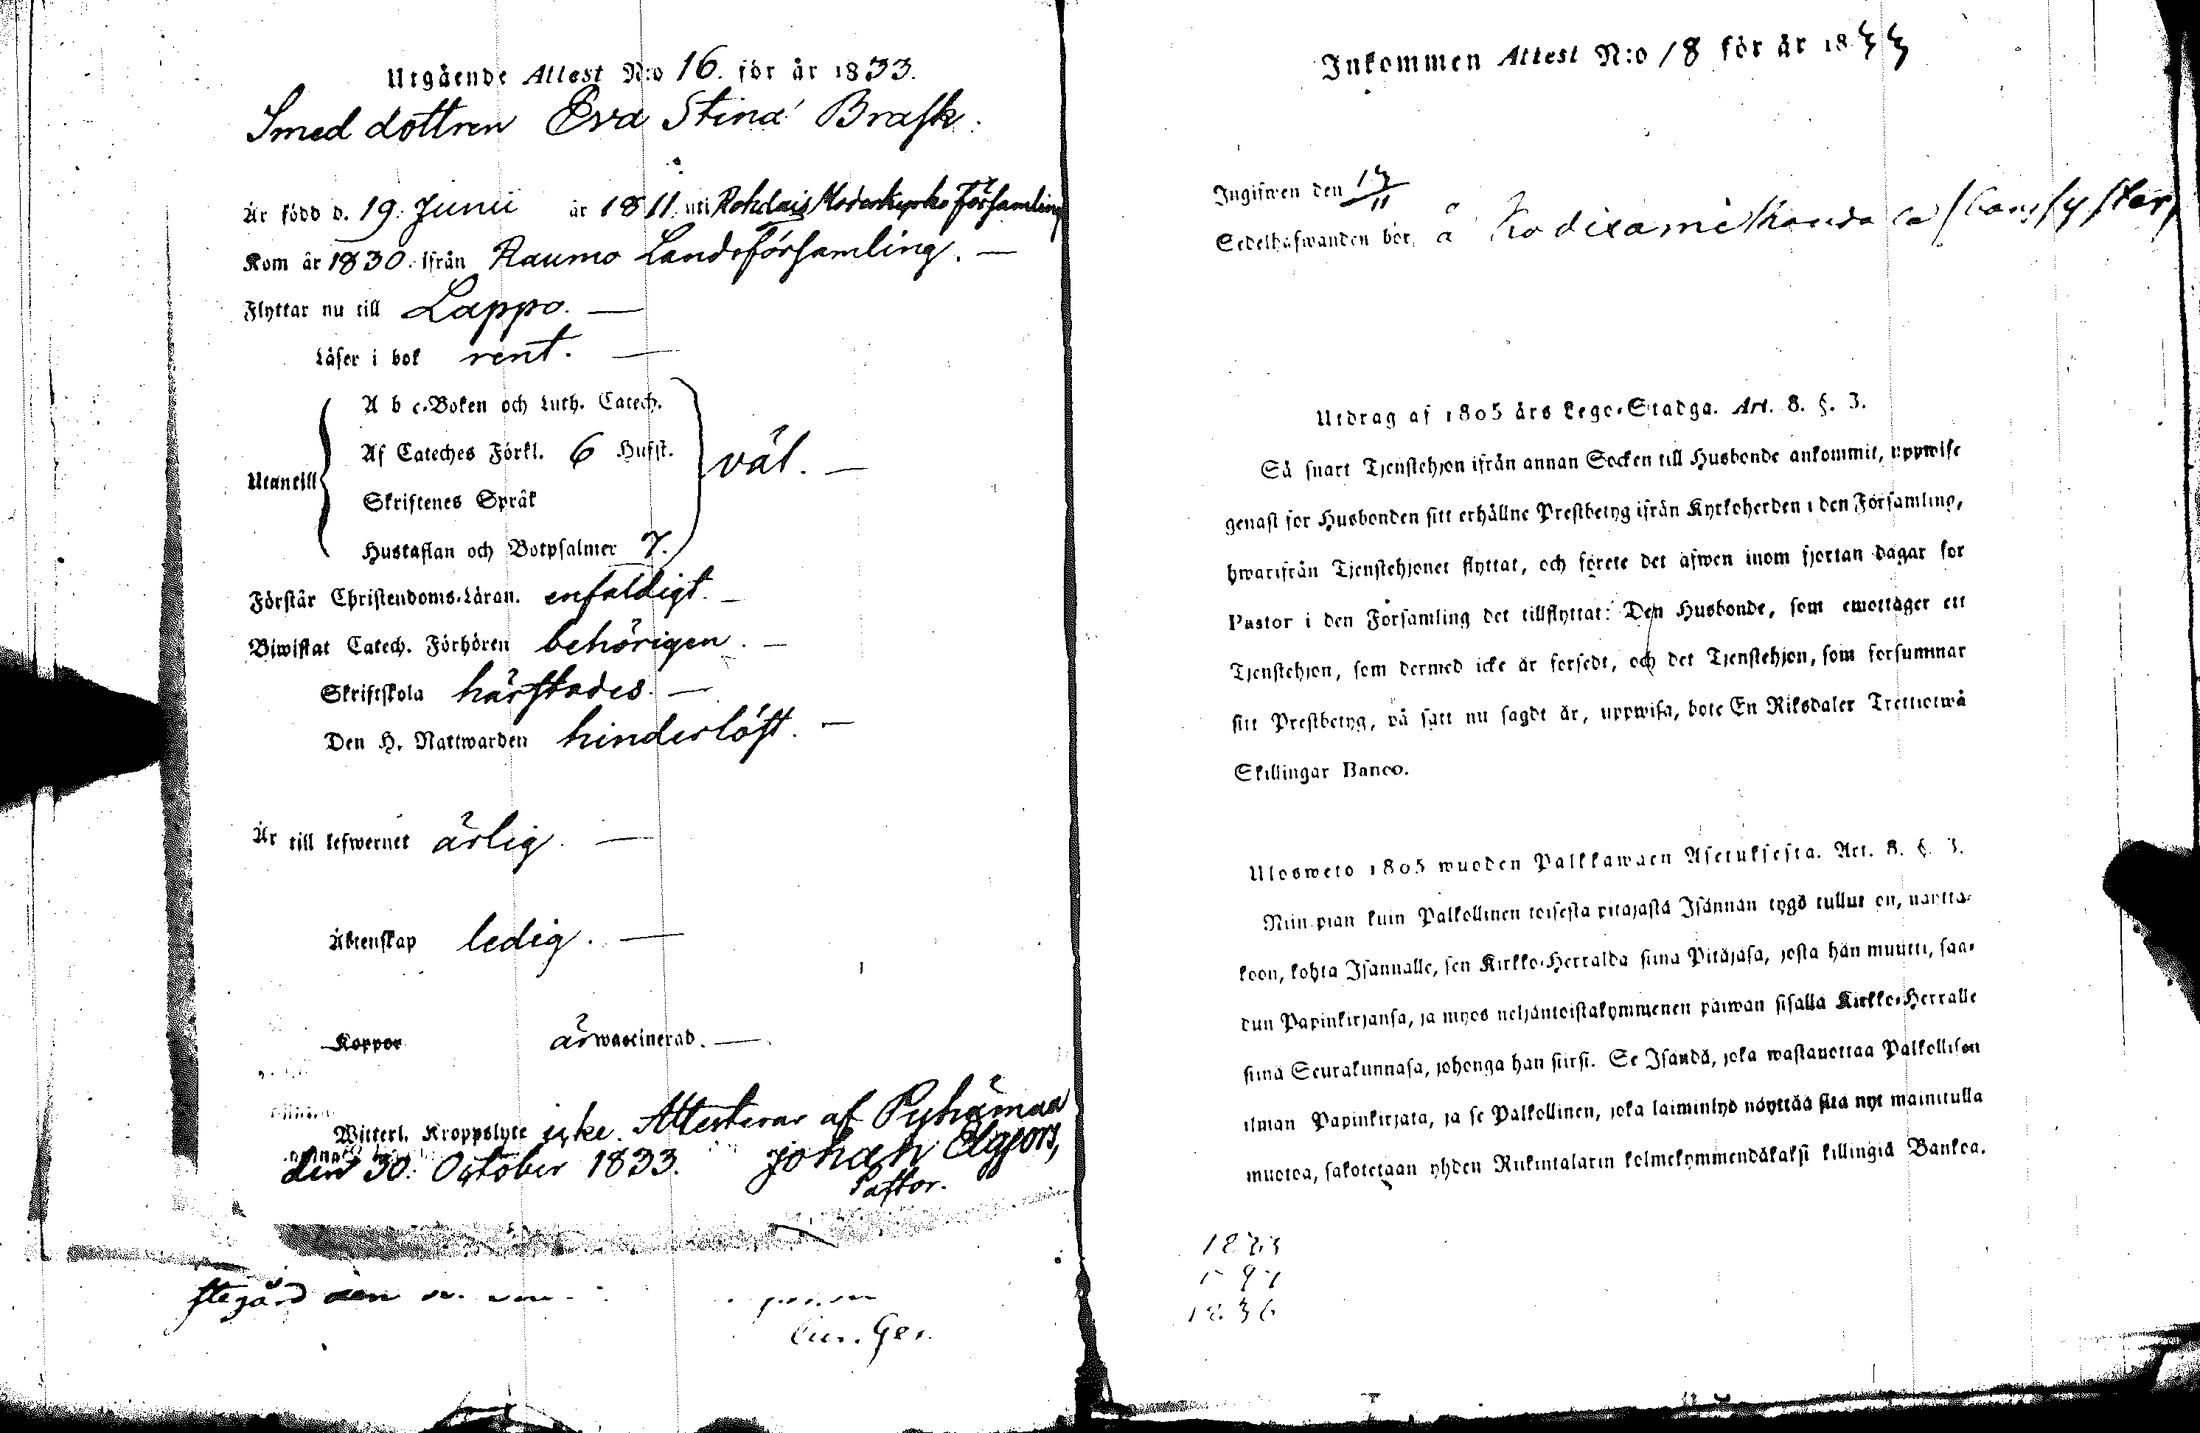 Utgående Attest N:o 16. för år 1833.
Smed dottren Eva Stina Brask.
Är född d. 19. Junii år 1811. uti Kohdais Moderkyrko Församling
Kom år 1830. ifrån Raumo Landsförsamling. —
Flyttar nu till Lappo. —
Läser i bok rent. —
A b c-Boken och Luth. Catech.
Af Cateches Förkl. 6 Hufst.
Utantill väl. —
Skriftenes Språk
Hustaflan och Botpsalmer 7.
Förstår Christendoms-Läran. enfaldigt. —
Biwistat Catech. Förhören behörigen. —
Skriftskola härstädes. —
Den H. Nattwarden hinderlöst. —
Är till lefwernet ärlig. —
Äktenskap ledig. —
Koppor är waccinerad. —
Witterl. Kroppslyte icke. Attesterar af Pyhämaa
den 30. October 1833. Johan Elgfors,
Pastor.
stegård den
Inkommen Attest N:o 18 för år 1833
Ingifwen den 17/11
Sedelhafwanden bor å
Utdrag af 1805 års Lego-Stadga. Art. 8. §. 3.
Så snart Tjenstehjon ifrån annan Socken till Husbonde ankommit, uppwise
genast for Husbonden sitt erhållne Prestbetyg ifrån Kyrkoherden i den Församling,
hwarifrån Tjenstehjonet flyttat, och förete det äfwen inom fjortan dagar for
Pastor i den Församling det tillflyttat: Den Husbonde, som emottager ett
Tjenstehjon, som dermed icke är forsedt, och det Tjenstehjon, som forsummar
sitt Prestbetyg, på sätt nu sagdt är, uppwisa, bote En Riksdaler Trettiotwå
Skillingar Banco.
Ulosweto 1805 wuoden Palkkawäen Asetuksesta. Art. 8. §. 3.
Niin pian kuin Palkollinen toisesta pitäjästä Isännän tygö tullut on, näyttä-
köön, kohta Isännälle, sen Kirkko-Herralda siinä Pitäjäsä, josta hän muutti, saa-
dun Papinkirjansa, ja myös neljäntoistakymmenen päiwän sisällä Kirkko-Herralle
siinä Seurakunnasa, johonga hän siirsi. Se Isändä, joka wastanottaa Palkollisen
ilman Papinkirjata, ja se Palkollinen, joka laiminlyö näyttää sitä nyt mainitulla
muotoa, sakotetaan yhden Riikintalarin kolmekymmendäkaksi killingiä Bankoa.
1836